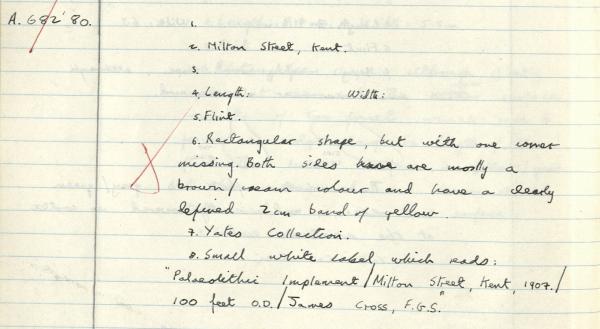 A. 682'80.
1.
2. Milton Street, Kent.
3.
4. Length: Width:
5. Flint.
6. Rectangular shape, but with one corner
missing. Both sides have are mostly a
brown/cream colour and have a clearly
defined 2cm band of yellow.
7. Yates Collection.
8. Small white label which reads:
"Palaeolithic Implement/Milton Street, Kent, 1907./
100 feet O.D./James Cross, F.G.S."